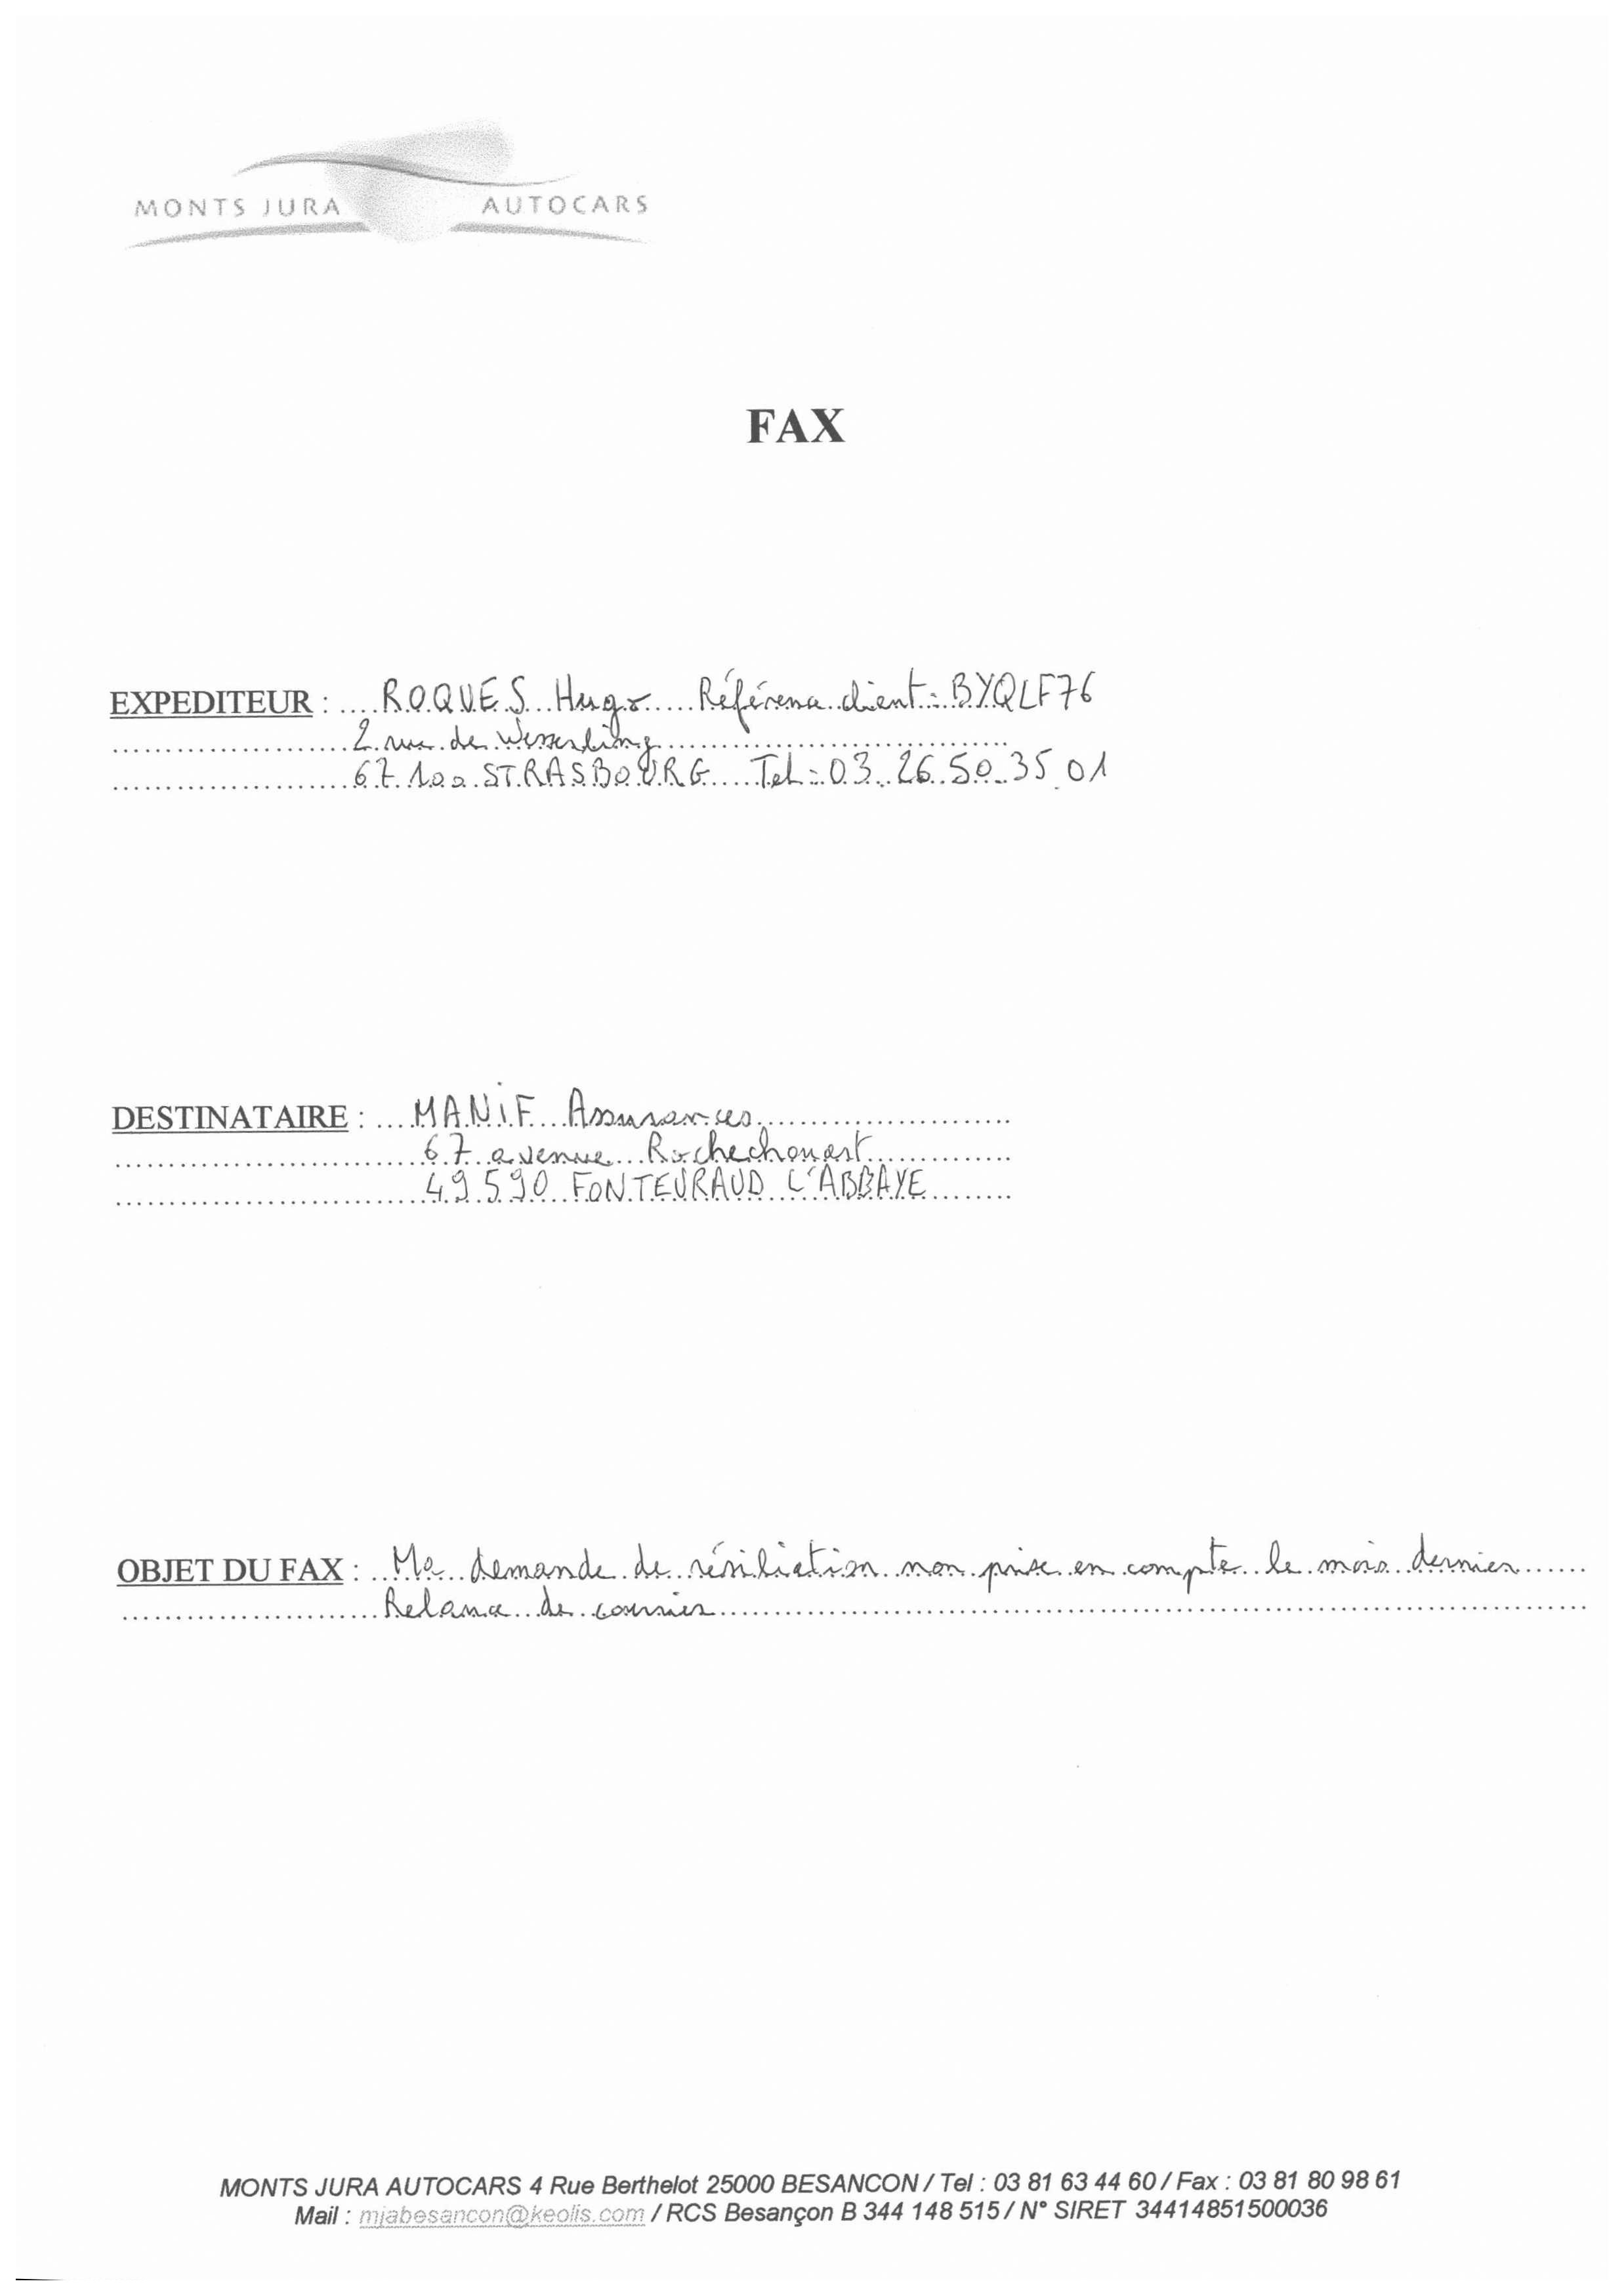 MONTS JURA AUTOCARS
FAX
EXPEDITEUR : ....ROQUES Hugo.....Référence client : BYQLF76
2 rue de Wesserling
67100 STRASBOURG Tel : 03 26 50 35 01
DESTINATAIRE : ....MANIF Assurances
67 avenue Rochechouart
49590 FONTEVRAUD L'ABBAYE
OBJET DU FAX : ..Ma demande de résiliation non prise en compte le mois dernier
Relance de courrier
MONTS JURA AUTOCARS 4 Rue Berthelot 25000 BESANCON / Tel : 03 81 63 44 60 / Fax : 03 81 80 98 61
Mail : mjabesancon@keolis.com / RCS Besançon B 344 148 515 / N° SIRET 34414851500036